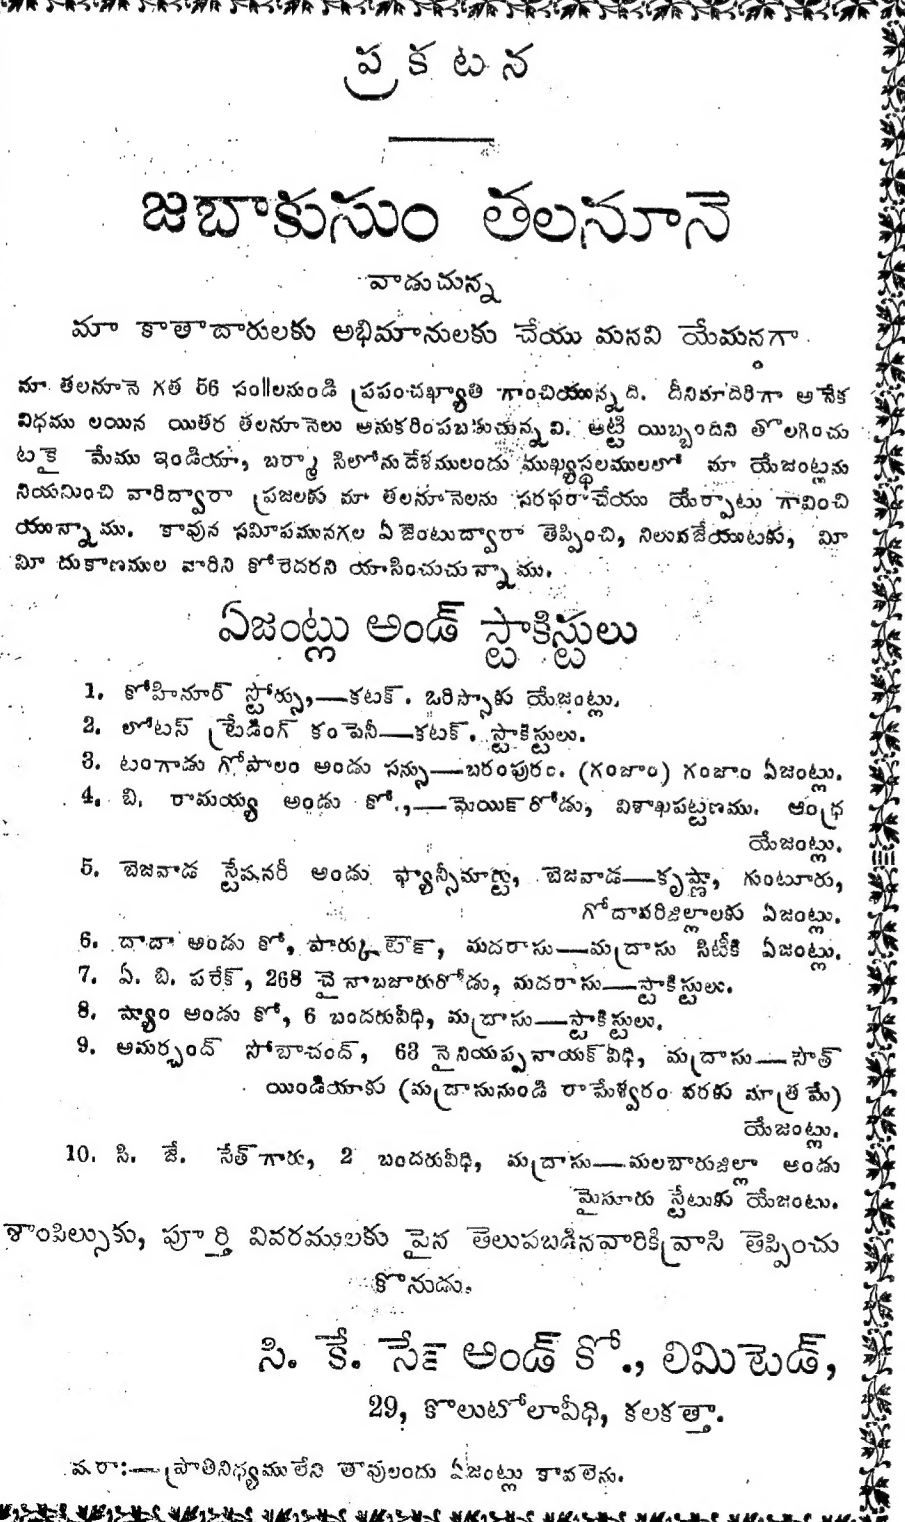 ప్రకటన
జబాకుసుం తలనూనె
వాడుచున్న
మా కాతాదారులకు అభిమానులకు చేయు మనవి యేమనగా
మా తలనూనె గత 56 సం॥లనుండి ప్రపంచఖ్యాతి గాంచియున్నది. దీనిమాదిరిగా అనేక
విధము లయిన యితర తలనూనెలు అనుకరింపబడుచున్నవి. అట్టి యిబ్బందిని తొలగించు
టకై మేము ఇండియా, బర్మా సిలోనుదేశములందు ముఖ్యస్థలములలో మా యేజంట్లను
నియమించి వారిద్వారా ప్రజలకు మా తలనూనెలను సరఫరాచేయు యేర్పాటు గావించి
యున్నాము. కావున సమీపమునగల ఏజెంటుద్వారా తెప్పించి, నిలువజేయుటకు, మీ
మీ దుకాణముల వారిని కోరెదరని యాసించుచున్నాము.
ఏజంట్లు అండ్ స్టాకిస్టులు
1. కోహినూర్ స్టోర్సు,—కటక్. ఒరిస్సాకు యేజంట్లు.
2. లోటస్ ట్రేడింగ్ కంపెనీ—కటక్. స్టాకిస్టులు.
3. టంగాడు గోపాలం అండు సన్సు—బరంపురం. (గంజాం) గంజాం ఏజంట్లు.
4. బి. రామయ్య అండు కో.,—మెయిక్ రోడు, విశాఖపట్టణము. ఆంధ్ర
యేజంట్లు.
5. బెజవాడ స్టేషనరీ అండు ఫ్యాన్సీమార్టు, బెజవాడ—కృష్ణా, గుంటూరు,
గోదావరిజిల్లాలకు ఏజంట్లు.
6. దాదా అండు కో, పార్కుటౌక్, మదరాసు—మద్రాసు సిటీకి ఏజంట్లు.
7. ఏ. బి. పరేక్, 268 చైనాబజారురోడు, మదరాసు—స్టాకిస్టులు.
8. ష్యాం అండు కో, 6 బందరువీధి, మద్రాసు—స్టాకిస్టులు.
9. అమర్చంద్ సోబాచంద్, 63 నైనియప్పనాయక్ వీధి, మద్రాసు—సౌత్
యిండియాకు (మద్రాసునుండి రామేశ్వరం వరకు మాత్రమే)
యేజంట్లు.
10. సి. జే. సేత్ గారు, 2 బందరువీధి, మద్రాసు—మలబారుజిల్లా అండు
మైసూరు స్టేటుకు యేజంటు.
శాంపిల్సుకు, పూర్తి వివరములకు పైన తెలుపబడినవారికివ్రాసి తెప్పించు
కొనుడు.
సి. కే. సేక్ అండ్ కో., లిమిటెడ్,
29, కొలుటోలావీధి, కలకత్తా.
ష.రా:—ప్రాతినిధ్యము లేని తావులందు ఏజంట్లు కావలెను.